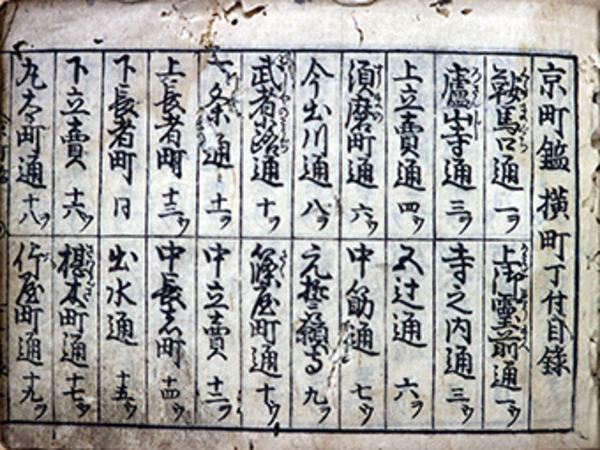 京町鑑 横町丁付目録
鞍馬口通 一ヲ
上御靈前通 一ウ
廬山寺通 三ヲ
寺之内通 三ウ
上立賣通 四ウ
五辻通 六ヲ
須磨町通 六ウ
中筋通 七ウ
今出川通 八ヲ
元誓願寺 九ヲ
武者小路通 十ヲ
篠屋町通 十ウ
一条通 十一ヲ
中立賣 十二ヲ
上長者町 十三ウ
中長者町 十四ウ
下長者町 同
出水通 十五ウ
下立賣 十六ウ
椹木町通 十七ウ
丸太町通 十八ヲ
竹屋町通 十九ヲ